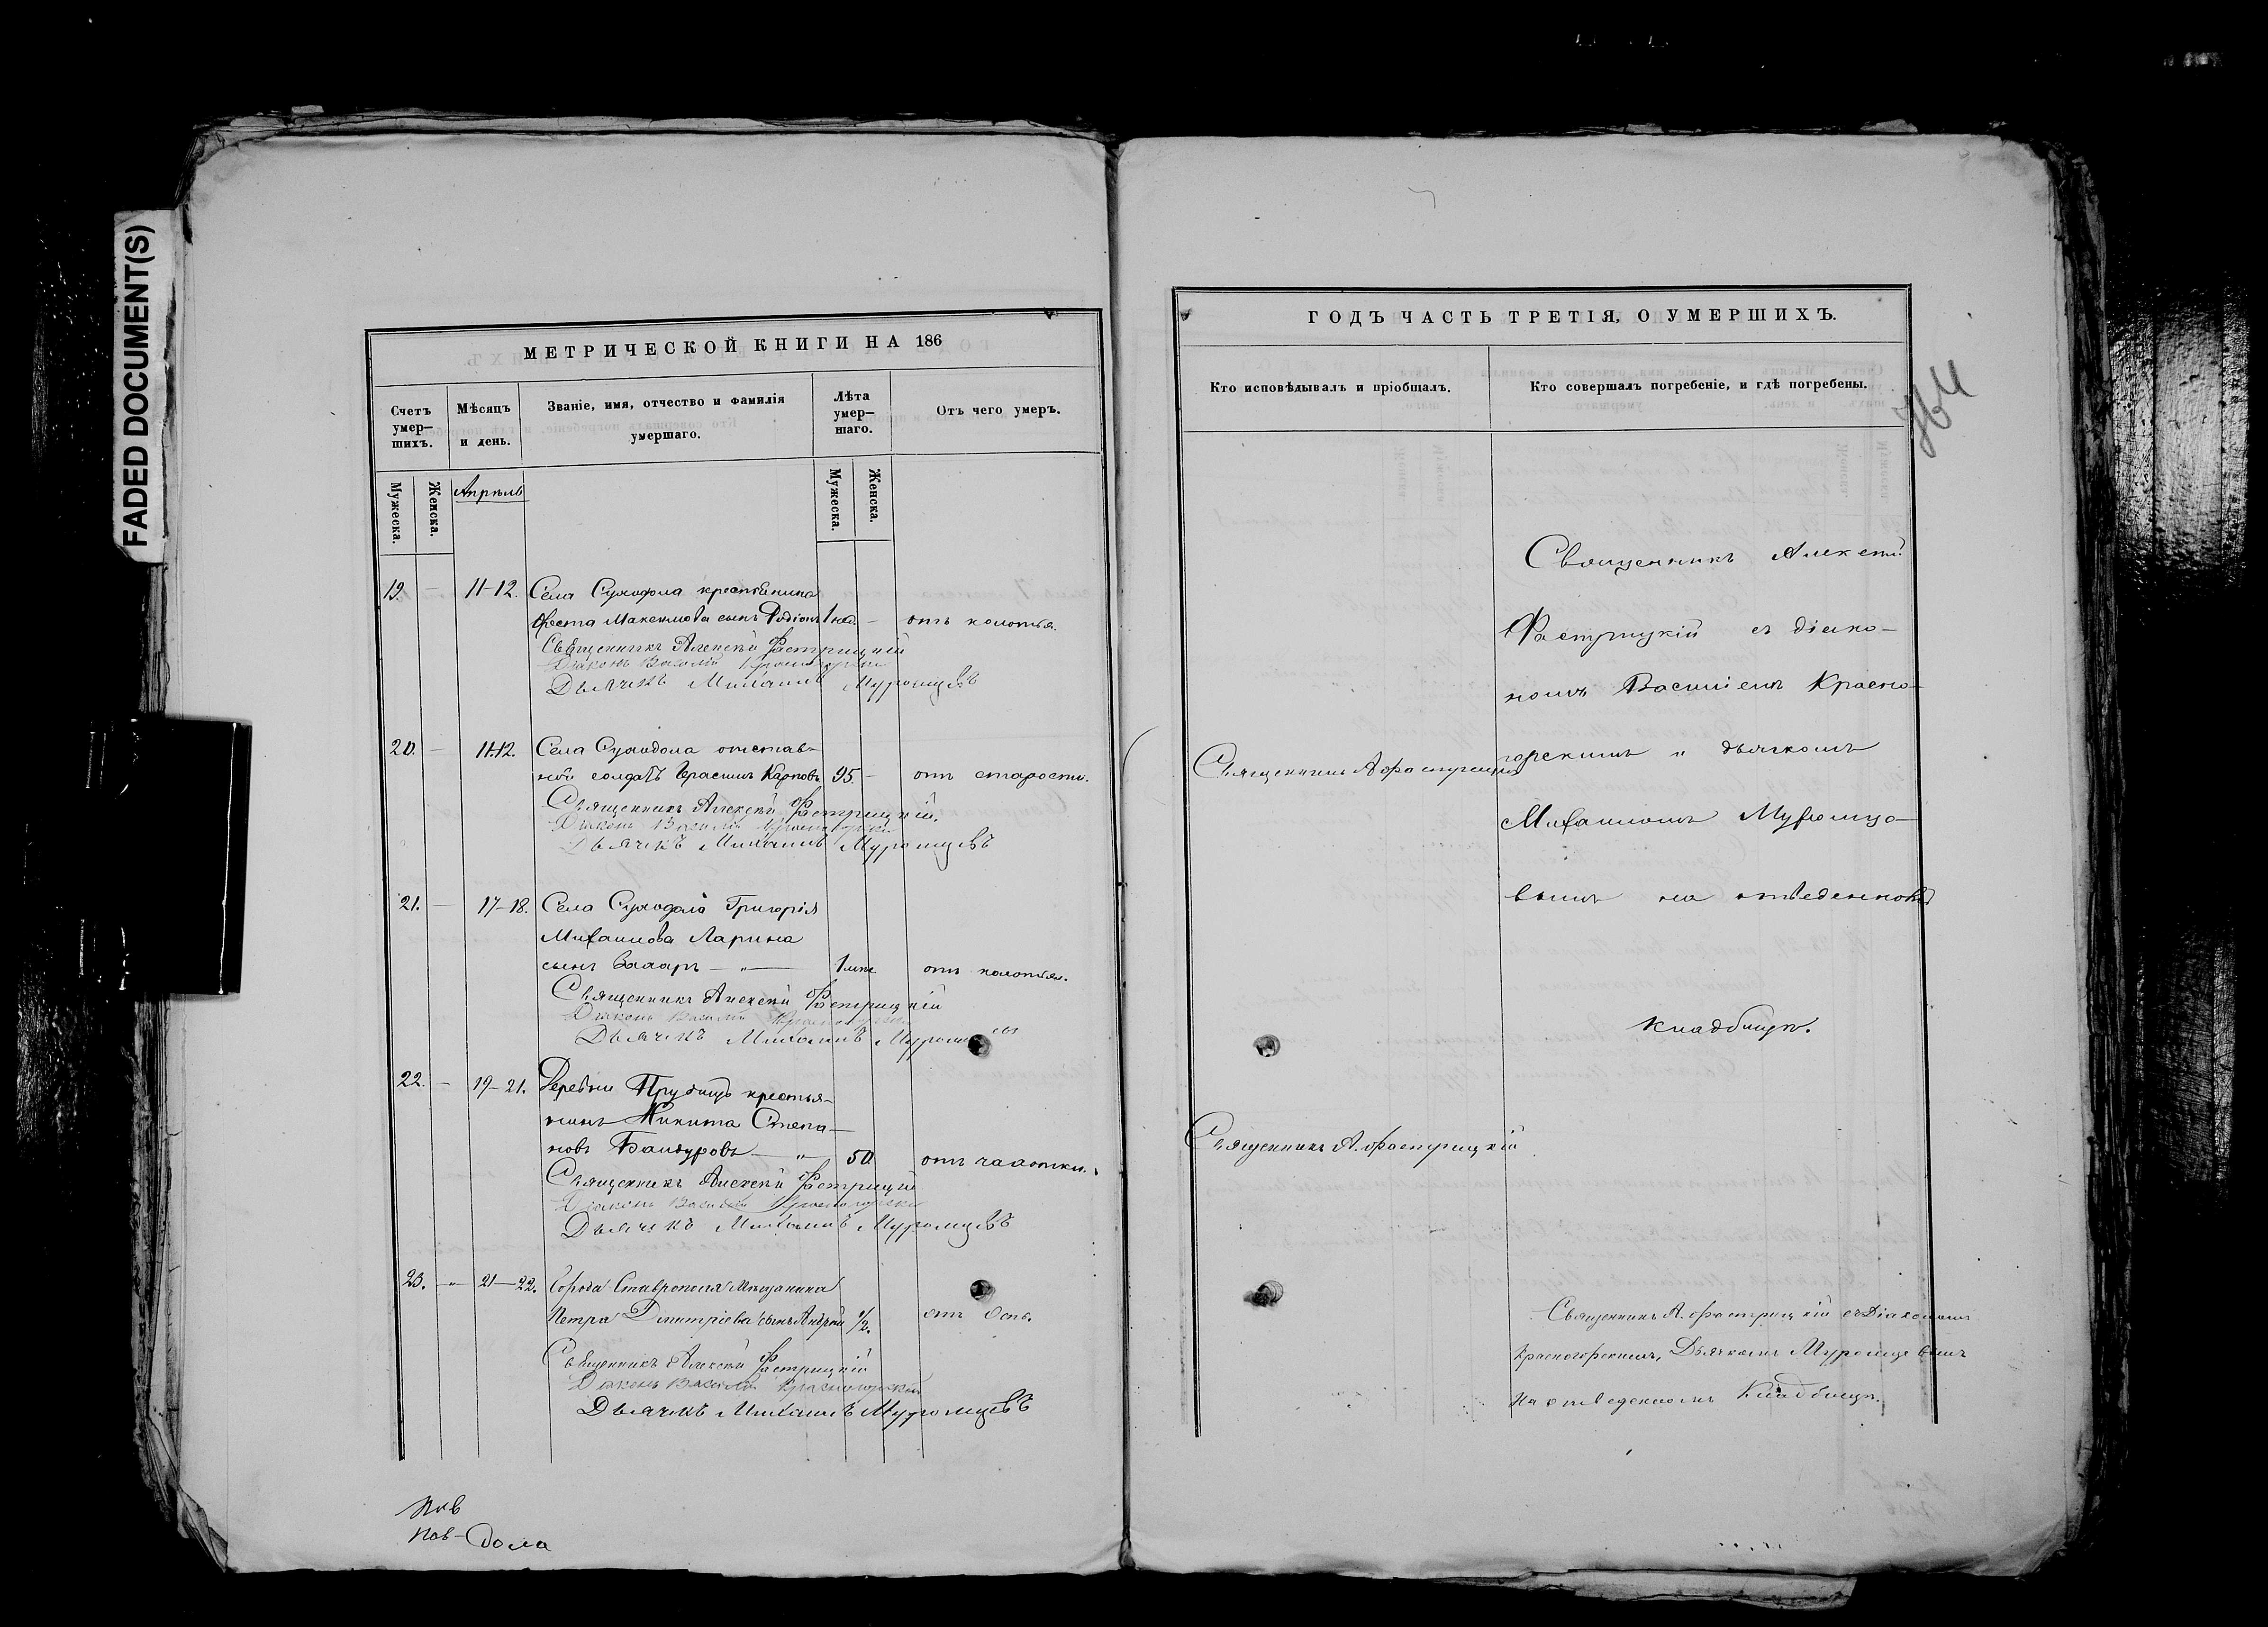 FADED DOCUMENT(S)
МЕТРИЧЕСКОЙ КНИГИ НА 186
Счетъ умер-шихъ.
Мѣсяцъ и день.
Званіе, имя, отчество и фамилія умершаго.
Лѣта умер-шаго.
Отъ чего умеръ.
Мужеска.
Женска.
Апрѣль
Мужеска.
Женска.
19. — 11-12. Села Суходола крестьянина
Максимова сынъ Родіонъ 1 нед. — отъ колотья.
Священникъ Алексѣй Фастрицкій
Діаконъ Василій Красногорскій
Дьячекъ Михаилъ Муромцевъ
20. — 11-12. Села Суходола отстав-
ной солдатъ Герасимъ Карповъ 95. — отъ старости.
Священникъ Алексѣй Фастрицкій.
Діаконъ Василій Красногорскій
Дьячекъ Михаилъ Муромцевъ
21. — 17-18. Села Суходола Григорія
Михаилова Ларина
сынъ Захаръ — „ — 1 отъ колотья.
Священникъ Алексѣй Фастрицкій
Діаконъ Василій Красногорскій
Дьячекъ Михаилъ
22. — 19-21. Деревни крестья-
нинъ Никита Степа-
новъ — „ 50 отъ чахотки.
Священникъ Алексѣй Фастрицкій
Діаконъ Василій Красногорскій
Дьячекъ Михаилъ Муромцевъ
23. — „ — 21-22. Города Ставрополя Мѣщанина
Петра Димитріева сынъ Андрей 1/2. отъ Оспы.
Священникъ Алексѣй Фастрицкій
Діаконъ Василій Красногорскій
Дьячекъ Михаилъ Муромцевъ
Пов
Пов-дола
ГОДЪ ЧАСТЬ ТРЕТІЯ, О УМЕРШИХЪ.
Кто исповѣдывалъ и пріобщалъ.
Кто совершалъ погребеніе, и гдѣ погребены.
Священникъ Алексѣй
Фастрицкій съ діако-
номъ Василіемъ Красно-
Священникъ А Фастрицкій
горскимъ и дьячкомъ
Михаиломъ Муромцо-
вымъ на отведенномъ
кладбищѣ.
Священникъ А. Фастрицкій
Священникъ А. Фастрицкій съ Діакономъ
Красногорскимъ, Дьячкомъ Муромцевымъ
На отведенномъ Кладбищѣ.